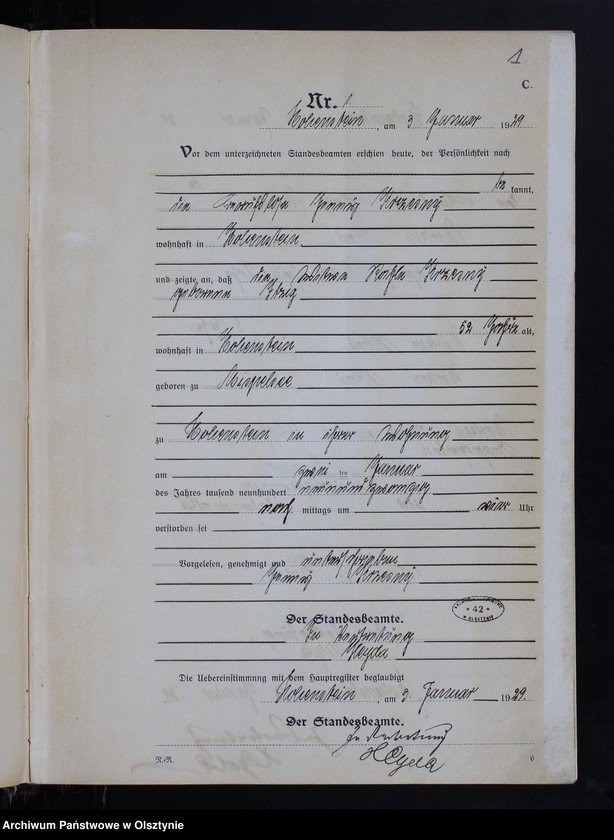 1
C.
Nr. 1.
Hohenstein, am 3. Januar 1929
Vor dem unterzeichneten Standesbeamten erschien heute, der Persönlichkeit nach
be kannt,
Krzesny
wohnhaft in Hohenstein
und zeigte an, daß die Witwe Krzesny
geborene
52 Jahre alt,
wohnhaft in Hohenstein
geboren zu
zu Hohenstein in ihrer Wohnung
am zwei ten Januar
des Jahres tausend neunhundert neunundzwanzig
nach mittags um vier Uhr
verstorben sei
Vorgelesen, genehmigt und unterschrieben
Krzesny
Der Standesbeamte.
In Vertretung
Heyda
Die Uebereinstimmung mit dem Hauptregister beglaubigt
Hohenstein, am 3. Januar 1929.
Der Standesbeamte.
In Vertretung
Heyda
42
C. 6
Archiwum Państwowe w Olsztynie